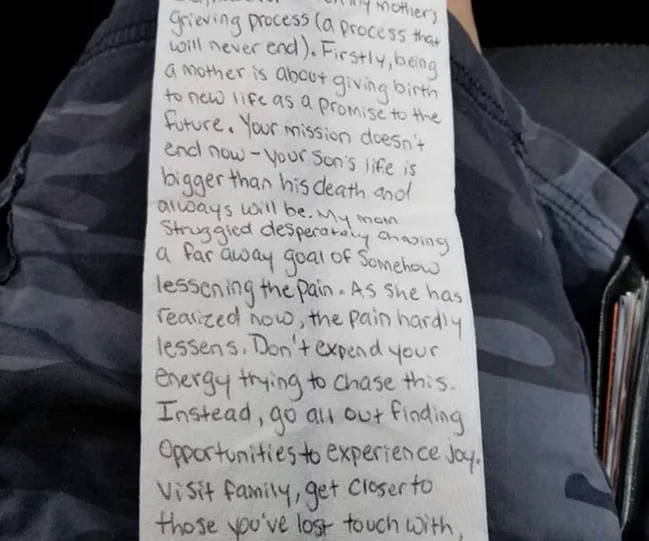 my mother's
grieving process (a process that
will never end). Firstly, being
a mother is about giving birth
to new life as a promise to the
future. Your mission doesn't
end now - your son's life is
bigger than his death and
always will be. My mom
struggled desperately chasing
a far away goal of somehow
lessening the pain. As she has
realized now, the pain hardly
lessens. Don't expend your
energy trying to chase this.
Instead, go all out finding
opportunities to experience joy.
Visit family, get closer to
those you've lost touch with,